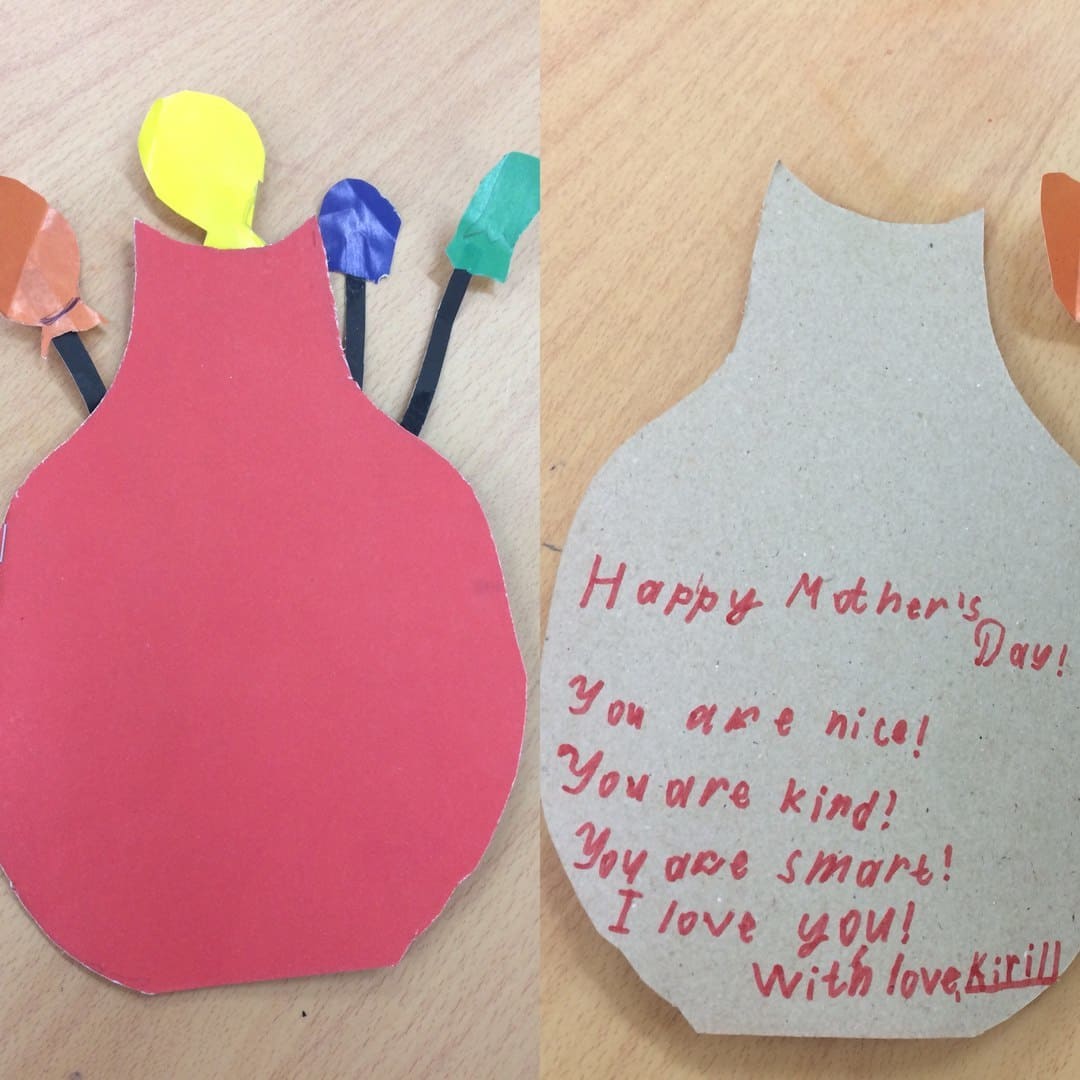 Happy Mother's
Day!
You are nice!
You are kind!
You are smart!
I love you!
With love, Kirill